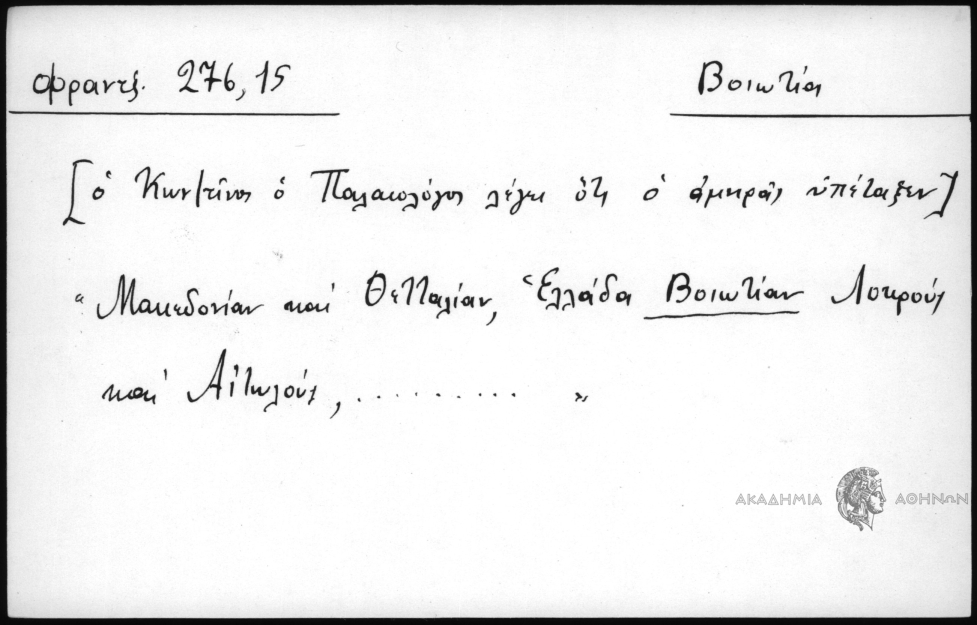 Φραντζ. 276,15
Βοιωτία
[ὁ Κων/τῖνος ὁ Παλαιολόγος λέγει ὅτι ὁ ἀμηρᾶς ὑπέταξεν]
"Μακεδονίαν καὶ Θετταλίαν, Ἑλλάδα Βοιωτίαν Λοκροὺς
καὶ Αἰτωλούς, .......... "
ΑΚΑΔΗΜΙΑ ΑΘΗΝΩΝ